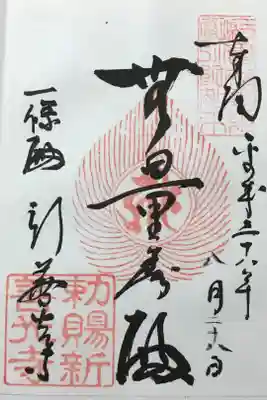 奉拝
平成二十六年
八月二十八日
無量寿殿
一條殿
新善光寺
勅賜新
善光寺